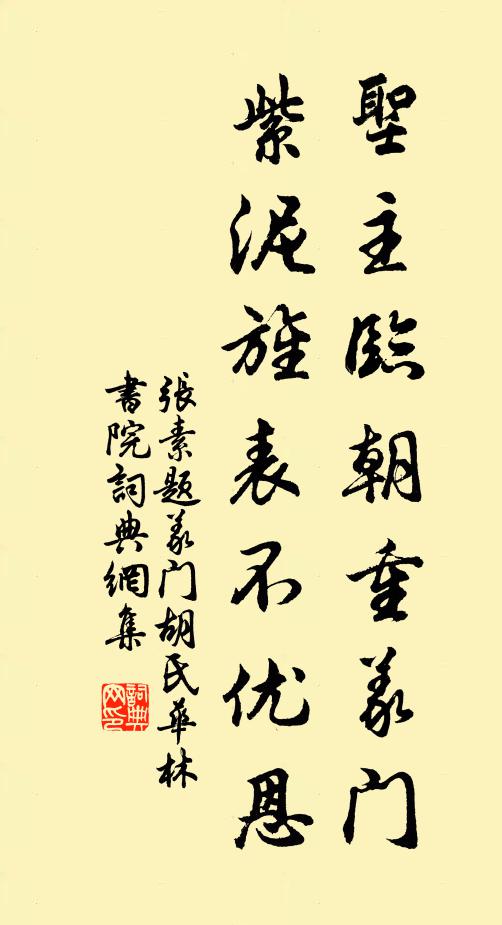 聖主臨朝重義門
紫泥旌表不优恩
張素題義门胡氏華林
書院詞典網集
詞典网印